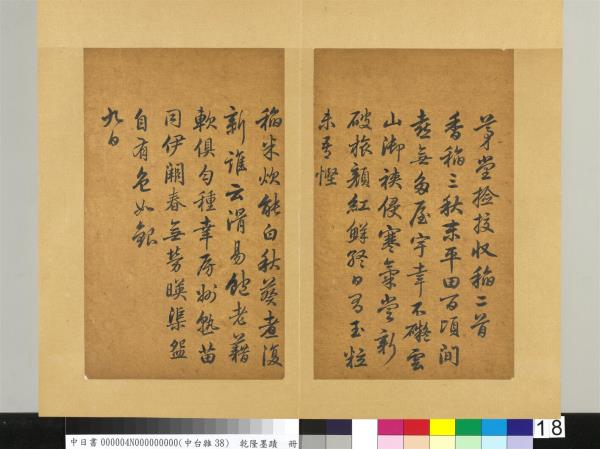 茅堂撿挍收稻二首
香稻三秋末平田百頃間
喜無多屋宇幸不礙雲
山御裌侵寒氣嘗新
破旅顏紅鮮終日有玉粒
未吾慳
稻米炊能白秋葵煮復
新誰云滑易飽老藉
軟俱勻種幸房州熟苗
同伊闕春無勞暎渠盌
自有色如銀
九日
中日書000004N000000000(中台雜38) 乾隆墨蹟 冊
18